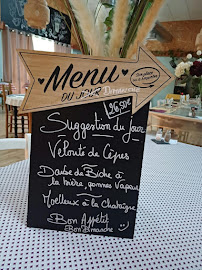 Menu
DU JOUR Dimanche
26,50€
Suggestion du jour
Velouté de Cèpes
Daube de Biche à
la bière, pommes Vapeur
Moelleux à la Chataigne
Bon Appétit
Bon Dimanche